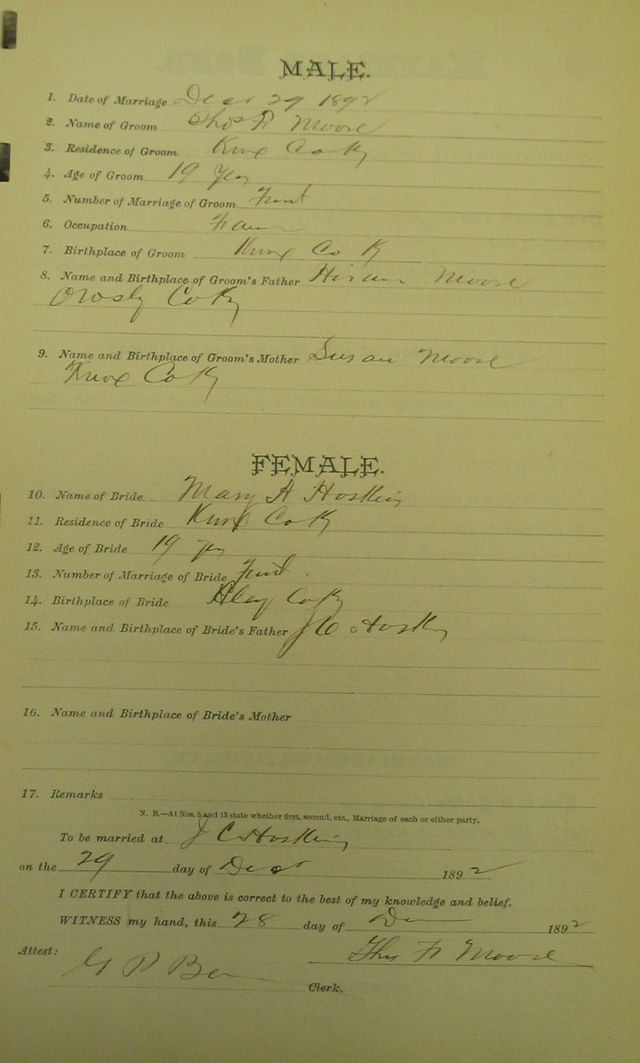 MALE.
1. Date of Marriage Decr 29 1892
2. Name of Groom Thos F Moore
3. Residence of Groom Knox Co Ky
4. Age of Groom 19 yrs
5. Number of Marriage of Groom First
6. Occupation Farmer
7. Birthplace of Groom Knox Co K
8. Name and Birthplace of Groom's Father Hiram Moore
Co Ky
9. Name and Birthplace of Groom's Mother Susan Moore
Knox Co Ky
FEMALE.
10. Name of Bride. Mary A Hoskins
11. Residence of Bride Knox Co Ky
12. Age of Bride 19 yrs
13. Number of Marriage of Bride First
14. Birthplace of Bride Clay Co Ky
15. Name and Birthplace of Bride's Father J C Hoskins
16. Name and Birthplace of Bride's Mother
17. Remarks
N. B.—At Nos. 5 and 13 state whether first, second, etc., Marriage of each or either party.
To be married at J C Hoskins
on the 29 day of Decr 1892
I CERTIFY that the above is correct to the best of my knowledge and belief.
WITNESS my hand, this 28 day of Dec 1892
Attest: Thos F Moore
G P
Clerk.